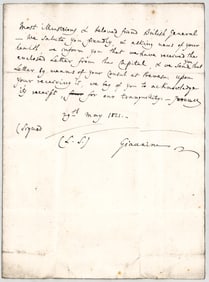 Most Illustrious & beloved friend British General
We Salute you kindly & asking news of your
health, we inform you that we have received the
enclosed Letter from this Capital, & we send you that
Letter by means of your Consul at upon
your receiving it, we beg of you to acknowledge
its receipt for our tranquility
29th May 1821.
(Signed
(L. S)